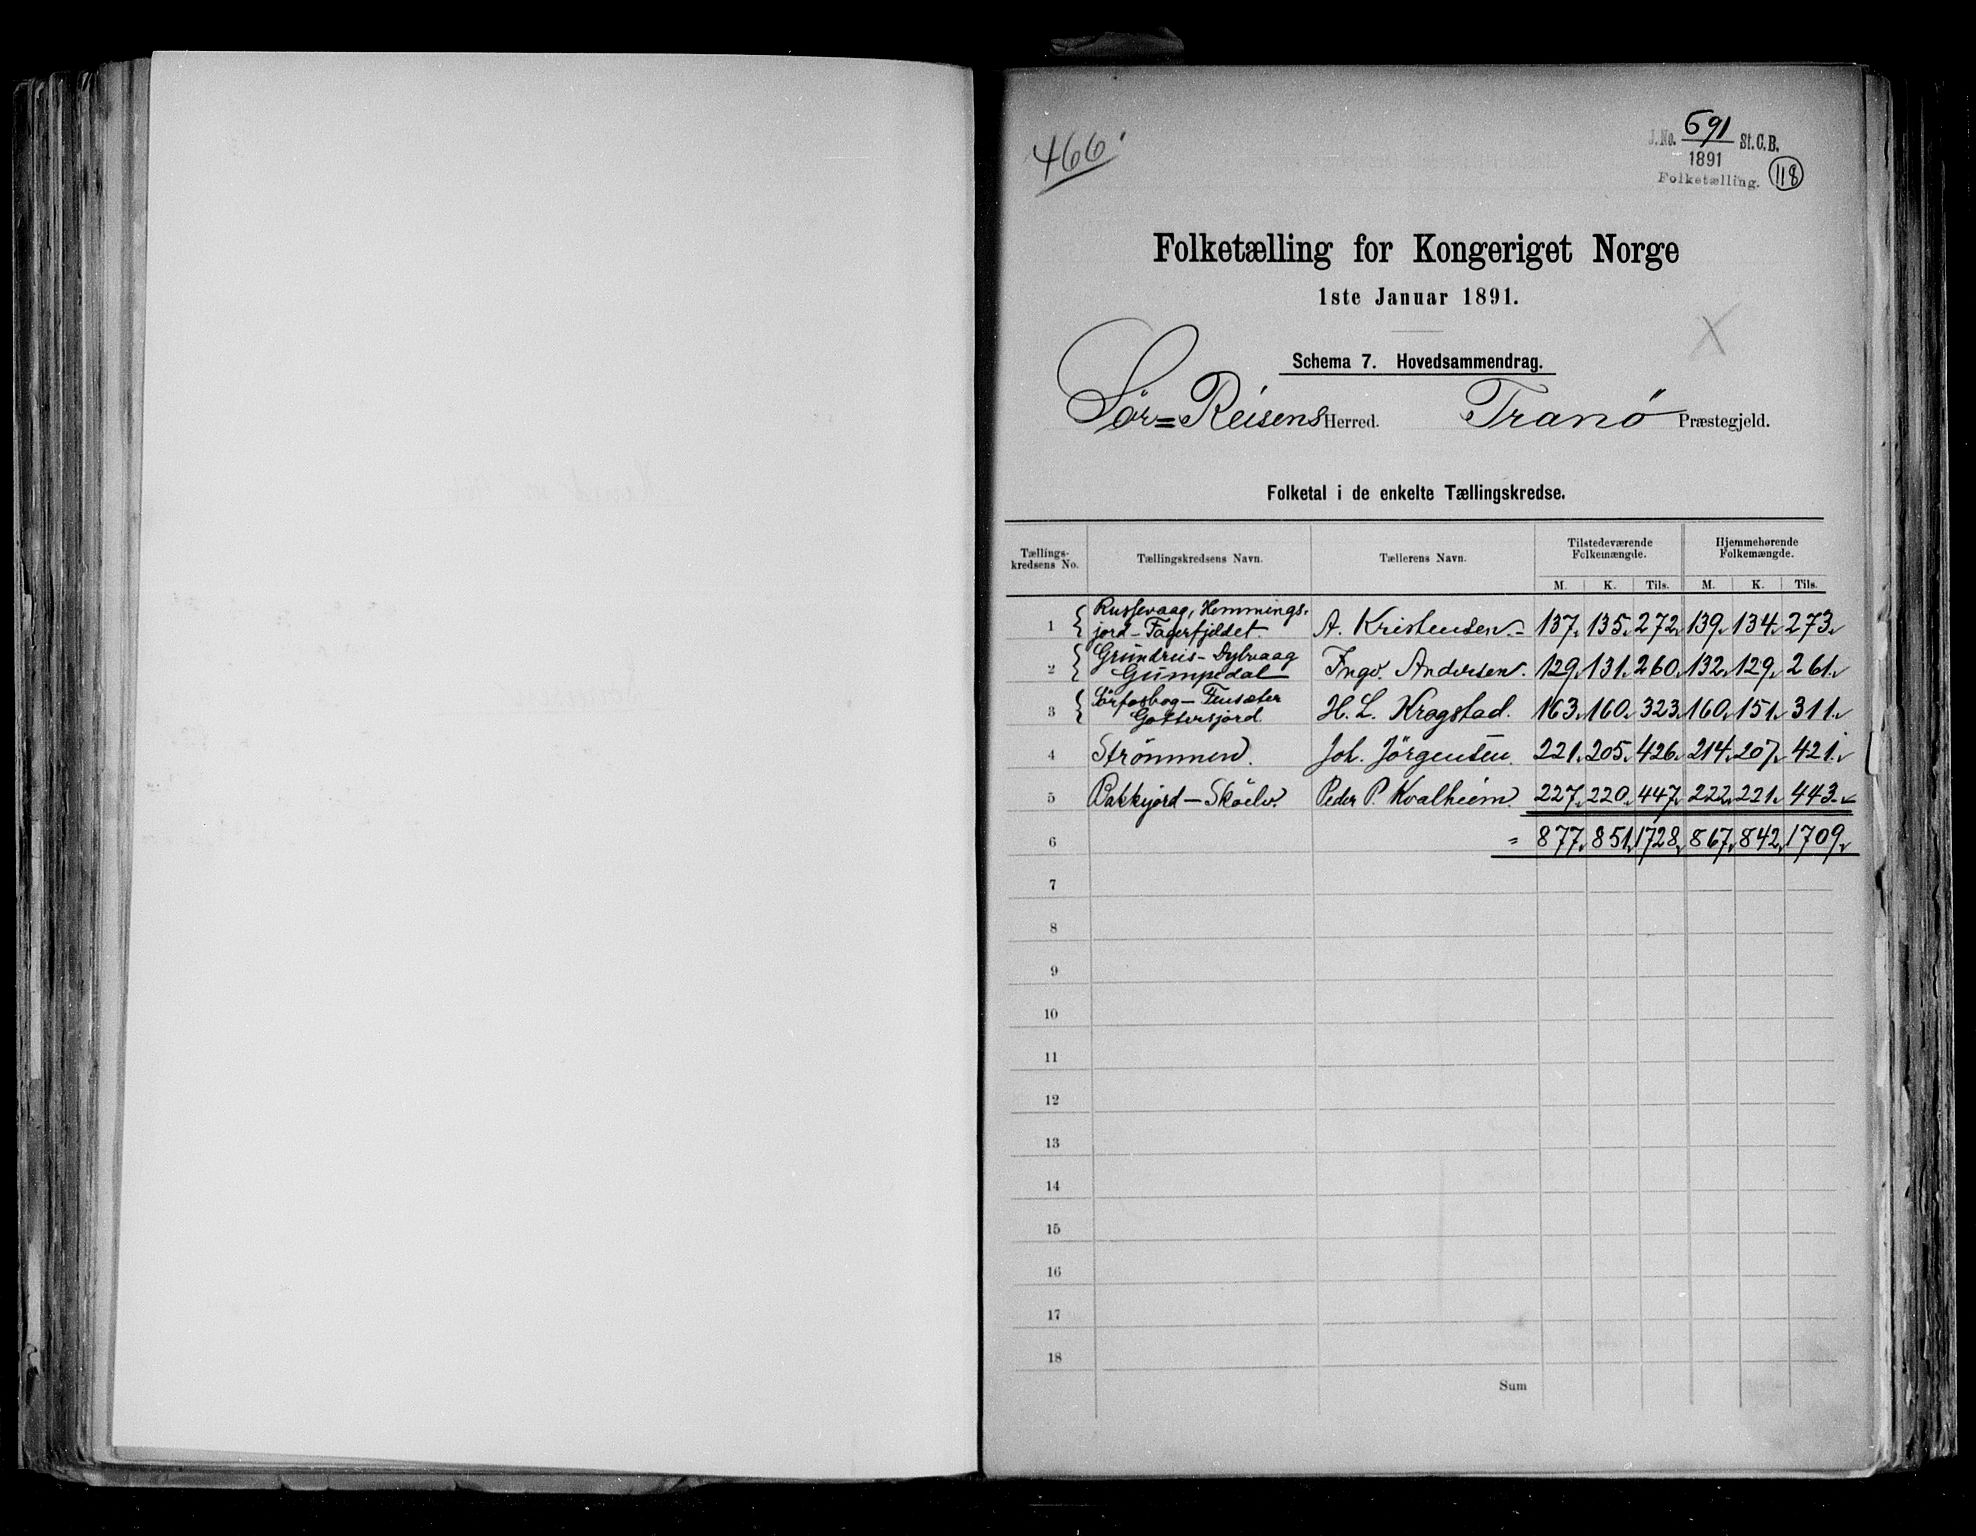 466
J. No. 691 St. C. B.
1891
Folketælling. 118
Folketælling for Kongeriget Norge
1ste Januar 1891.
Schema 7. Hovedsammendrag.
Sør=Reisens Herred. Tranø Præstegjeld.
Folketal i de enkelte Tællingskredse.
Tællings-kredsens No. Tællingskredsens Navn. Tællerens Navn. Tilstedeværende Folkemængde. Hjemmehørende Folkemængde.
M. K. Tils. M. K. Tils.
Russevaag, Hemmings-
1 jord - Fagerfjeldet. A. Kristensen. 137 135 272 139 134 273
Grundreis - Dybvaag
2 Gumpedal Ingv. Andersen. 129 131 260 132 129 261
Sørfosbog - Tensæter
3 Gottersjord. H. L. Krogstad. 163 160 323 160 151 311
4 Strømmen. Joh. Jørgensen. 221 205 426 214 207 421
5 Bakkejord - Skøelv. Peder P. Kvalheim. 227 220 447 222 221 443
6 = 877 851 1728 867 842 1709
7
8
9
10
11
12
13
14
15
16
17
18
Sum